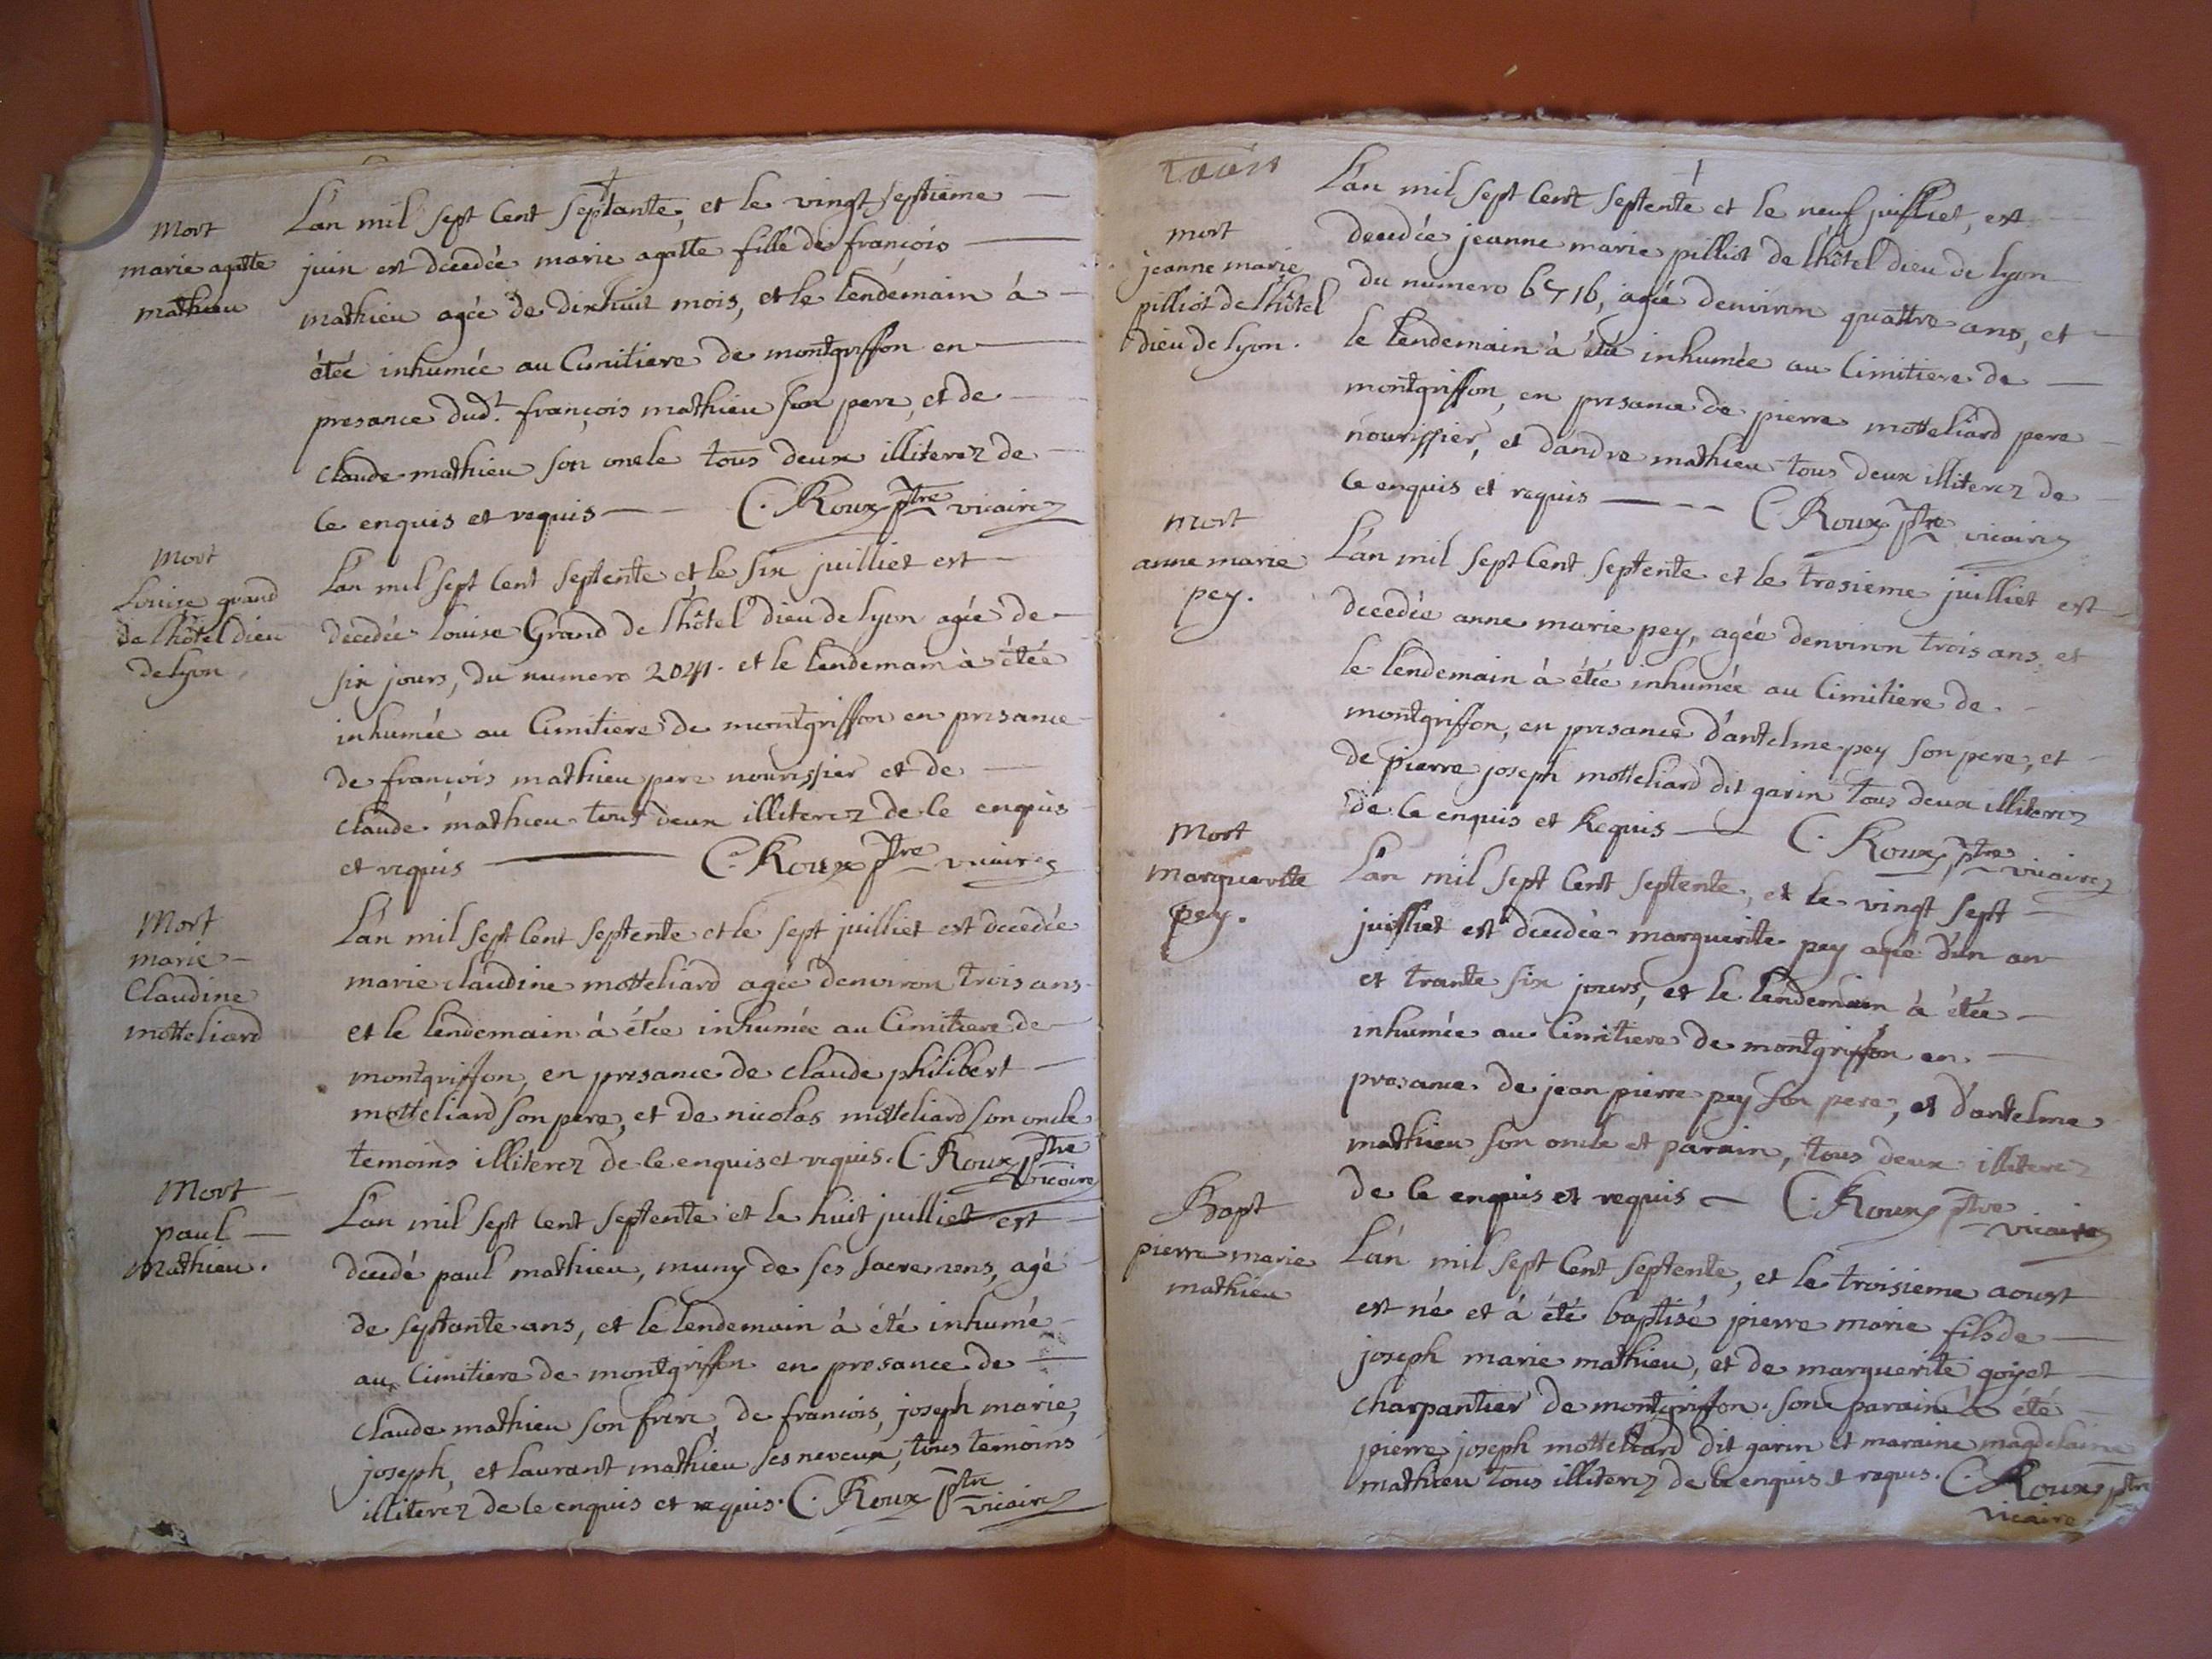 Mort
marie agatte
mathieu
L'an mil sept cent septante, et le vingt septieme
juin est decedée marie agatte fille de françois
mathieu agée de dixhuit mois, et le lendemain à
étée inhumée au Cimitiere de montgriffon en
presance dud.t françois mathieu son pere, et de
claude mathieu son oncle tous deux illiterez de
ce enquis et requis C. Roux ptre vicaire
Mort
Louise grand
de l'hôtel dieu
de lyon
L'an mil sept cent septente et le six juilliet est
decedée louise Grand de l'hôtel dieu de lyon agée de
six jours, du numero 2041. et le lendemain à étée
inhumée au Cimitiere de montgriffon en presance
de françois mathieu pere nourissier et de
claude mathieu tous deux illiterez de ce enquis
et requis C. Roux ptre vicaire
Mort
marie
Claudine
motteliard
L'an mil sept cent septente et le sept juilliet est decedée
marie claudine motteliard agée denviron trois ans
et le lendemain à étée inhumée au Cimitiere de
montgriffon, en presance de claude philibert
motteliard son pere, et de nicolas motteliard son oncle
temoins illiterez de ce enquis et requis. C. Roux ptre
vicaire
Mort
paul
Mathieu.
L'an mil sept cent septente et le huit juilliet est
decedé paul mathieu, muny de ses sacremens, agé
de septante ans, et le lendemain à été inhumé
au Cimitiere de montgriffon en presance de
claude mathieu son frere, de francois, joseph marie,
joseph, et laurant mathieu ses neveux, tous temoins
illiterez de ce enquis et requis. C. Roux ptre
vicaire
mort
jeanne marie
pilliot de l'hôtel
dieu de lyon.
L'an mil sept cent septente et le neuf juilliet, est
decedée jeanne marie pilliot de l'hôtel dieu de lyon
du numero agée denviron quattre ans, et
le lendemain à été inhumée au Cimitiere de
montgriffon, en presance de pierre motteliard pere
nourissier, et dandre mathieu tous deux illiterez de
ce enquis et requis C. Roux ptre vicaire
mort
anne marie
pey.
L'an mil sept cent septente et le tresieme juilliet est
decedée anne marie pey, agée denviron trois ans et
le lendemain à étée inhumée au Cimitiere de
montgriffon, en presance d'antelme pey son pere, et
de pierre joseph motteliard dit garin tous deux illiterez
de ce enquis et Requis C. Roux ptre vicaire
Mort
Marguerite
pey.
L'an mil sept cent septente, et le vingt sept
juilliet est decedée marguerite pey agée d'un an
et trante six jours, et le lendemain à étée
inhumée au Cimitiere de montgriffon en
presance de jean pierre pey son pere, et d'antelme
mathieu son oncle et parain, tous deux illiterez
de ce enquis et requis C. Roux ptre
vicaire
Bapt
pierre marie
mathieu
L'an mil sept cent septente, et le troisieme aoust
est né et à été baptisé pierre marie fils de
joseph marie mathieu, et de marguerite goyet
charpantier de montgriffon. son parain à été
pierre joseph motteliard dit garin et maraine magdelaine
mathieu tous illiterez de ce enquis et requis. C. Roux ptre
vicaire